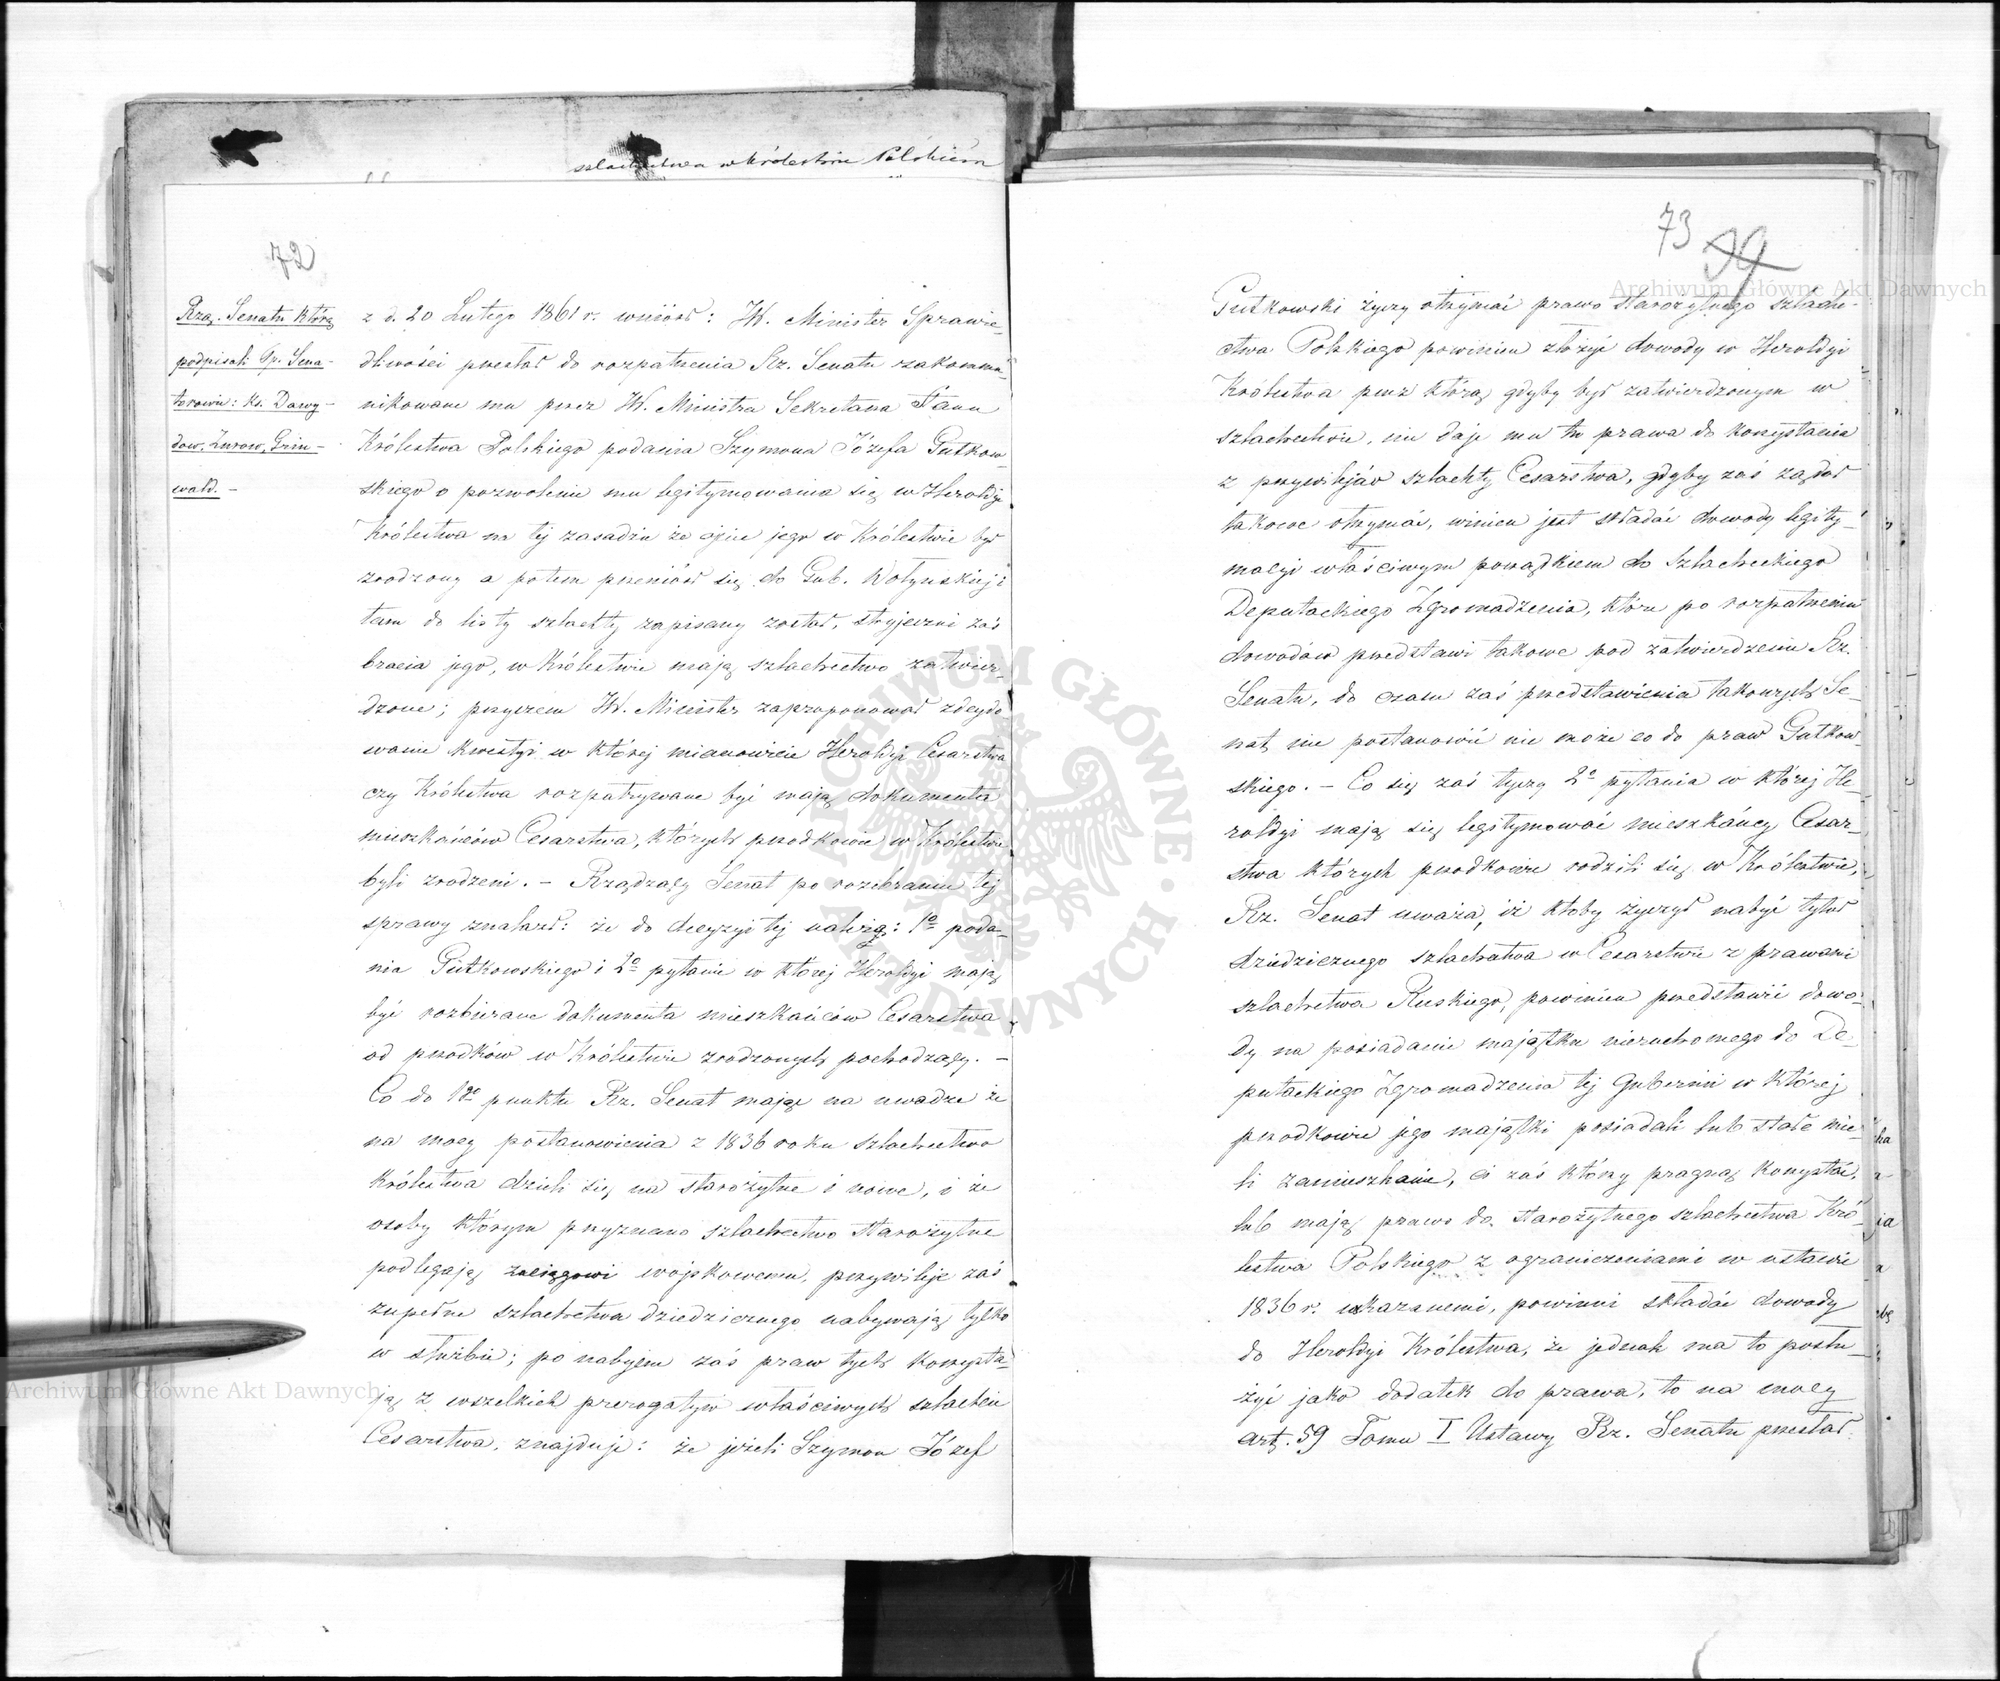 szlachectwa w Królestwie Polskiem
72
Rzą. Senatu którą
podpisali Pp. Sena-
torowie: Ks. Dawy-
dow, Żurow, Grin-
wald. -
z d. 20 Lutego 1861 r. wniósł: W. Minister Sprawie-
dliwości przesłał do rozpatrzenia Rz. Senatu zakommu-
nikowane mu przez W. Ministra Sekretarza Stanu
Królestwa Polskiego podania Szymona Józefa Gutkow-
skiego o pozwolenie mu legitymowania się w Heroldyi
Królestwa na tej zasadzie że ojciec jego w Królestwie był
zrodzony a potem przeniósł się do Gub. Wołyńskiej i
tam do listy szlachty zapisany został, stryjeczni zaś
bracia jego, w Królestwie mają szlachectwo zatwier-
dzone; przyczem W. Minister zaproponował zdecydo
wanie kwestyi w której mianowicie Heroldyi Cesarstwa
czy Królestwa rozpatrywane być mają dokumenta
mieszkańców Cesarstwa, których przodkowie w Królestwie
byli zrodzeni. - Rządzący Senat po rozebraniu tej
sprawy znalazł: że do decyzyi tej należą: 1o poda-
nia Gutkowskiego i 2o pytanie w której Heroldyi mają
być rozbierane dokumenta mieszkańców Cesarstwa
od przodków w Królestwie zrodzonych pochodzący. -
Co do 1go punktu Rz. Senat mając na uwadze że
na mocy postanowienia z 1836 roku szlachectwo
Królestwa dzieli się na starożytne i nowe, i że
osoby którym przyznano szlachectwo starożytne
podlegają zaciągowi wojskowemu, przywileje zaś
zupełne szlachectwa dziedzicznego nabywają tylko
w służbie; po nabyciu zaś praw tych korzysta-
ją z wszelkich prerogatyw właściwych szlachcie
Cesarstwa, znajduje: że jeżeli Szymon Józef
73 99
Gutkowski życzy otrzymać prawo starożytnego szlache-
ctwa Polskiego powinien złożyć dowody w Heroldyi
Królestwa przez którą gdyby był zatwierdzonym w
szlachectwie, nie daje mu to prawa do korzystania
z przywilejów szlachty Cesarstwa, gdyby zaś żądał
takowe otrzymać, winien jest składać dowody legity-
macyi właściwym porządkiem do Szlacheckiego
Deputackiego Zgromadzenia, które po rozpatrzeniu
dowodów przedstawi takowe pod zatwierdzenie Rz.
Senatu, do czasu zaś przedstawienia takowych Se-
nat nic postanowić nie może co do praw Gutkow-
skiego. - Co się zaś tyczy 2o pytania w której He-
roldyi mają się legitymować mieszkańcy Cesar-
stwa których przodkowie rodzili się w Królestwie,
Rz. Senat uważa, iż ktoby życzył nabyć tytuł
dziedzicznego szlachectwa w Cesarstwie z prawami
szlachectwa Ruskiego, powinien przedstawić dowo-
dy na posiadanie majątku nieruchomego do De-
putackiego Zgromadzenia tej Gubernii w której
przodkowie jego majątki posiadali lub stałe mie-
li zamieszkanie, ci zaś którzy pragną korzystać,
lub mają prawo do starożytnego szlachectwa Kró-
lestwa Polskiego z ograniczeniami w ustawie
1836 r. wskazanemi, powinni składać dowody
do Heroldyi Królestwa, że jednak ma to posłu-
żyć jako dodatek do prawa, to na mocy
art. 59 Tomu I Ustawy Rz. Senatu przesłał
Archiwum Główne Akt Dawnych
Archiwum Główne Akt Dawnych
ARCHIWUM GŁÓWNE · AKT DAWNYCH ·